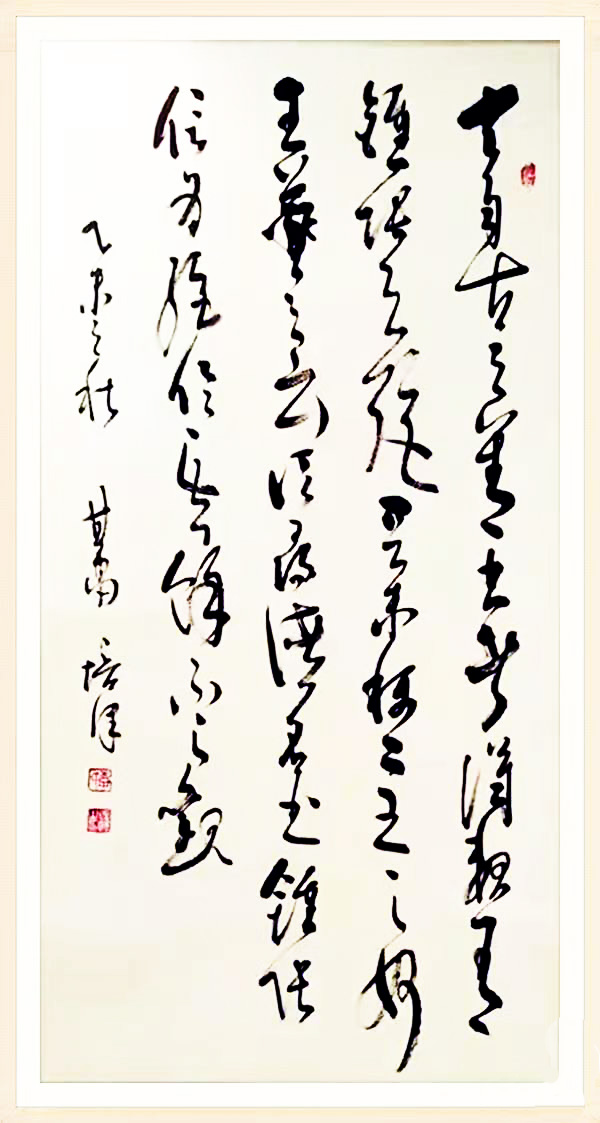 夫自古之善書者漢魏有
鍾張之絕晉末稱二王之妙
王羲之云頃尋諸名書鍾張
信為絕倫其餘不足觀
乙未之秋 甘肅 培